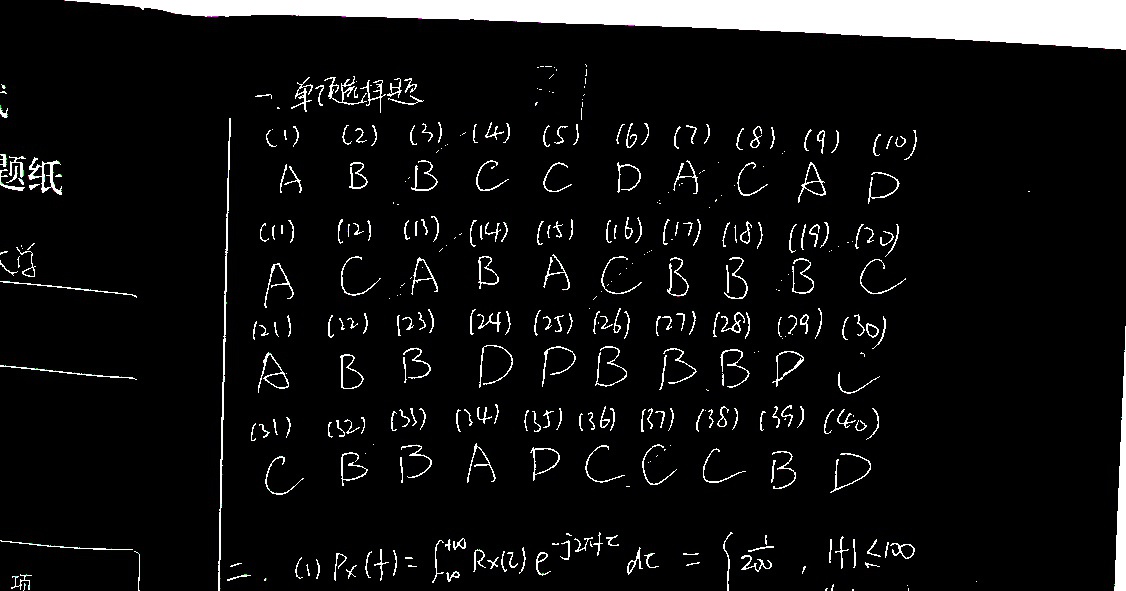 一、单项选择题
(1) (2) (3) (4) (5) (6) (7) (8) (9) (10)
A B B C C D A C A D
(11) (12) (13) (14) (15) (16) (17) (18) (19) (20)
A C A B A C B B B C
(21) (22) (23) (24) (25) (26) (27) (28) (29) (30)
A B B D D B B B D C
(31) (32) (33) (34) (35) (36) (37) (38) (39) (40)
C B B A D C C C B D
二、(1) Px(f) = ∫_{-∞}^{+∞} Rx(τ) e^{-j2πfτ} dτ = { 1/200 , |f| ≤ 100
题纸
项